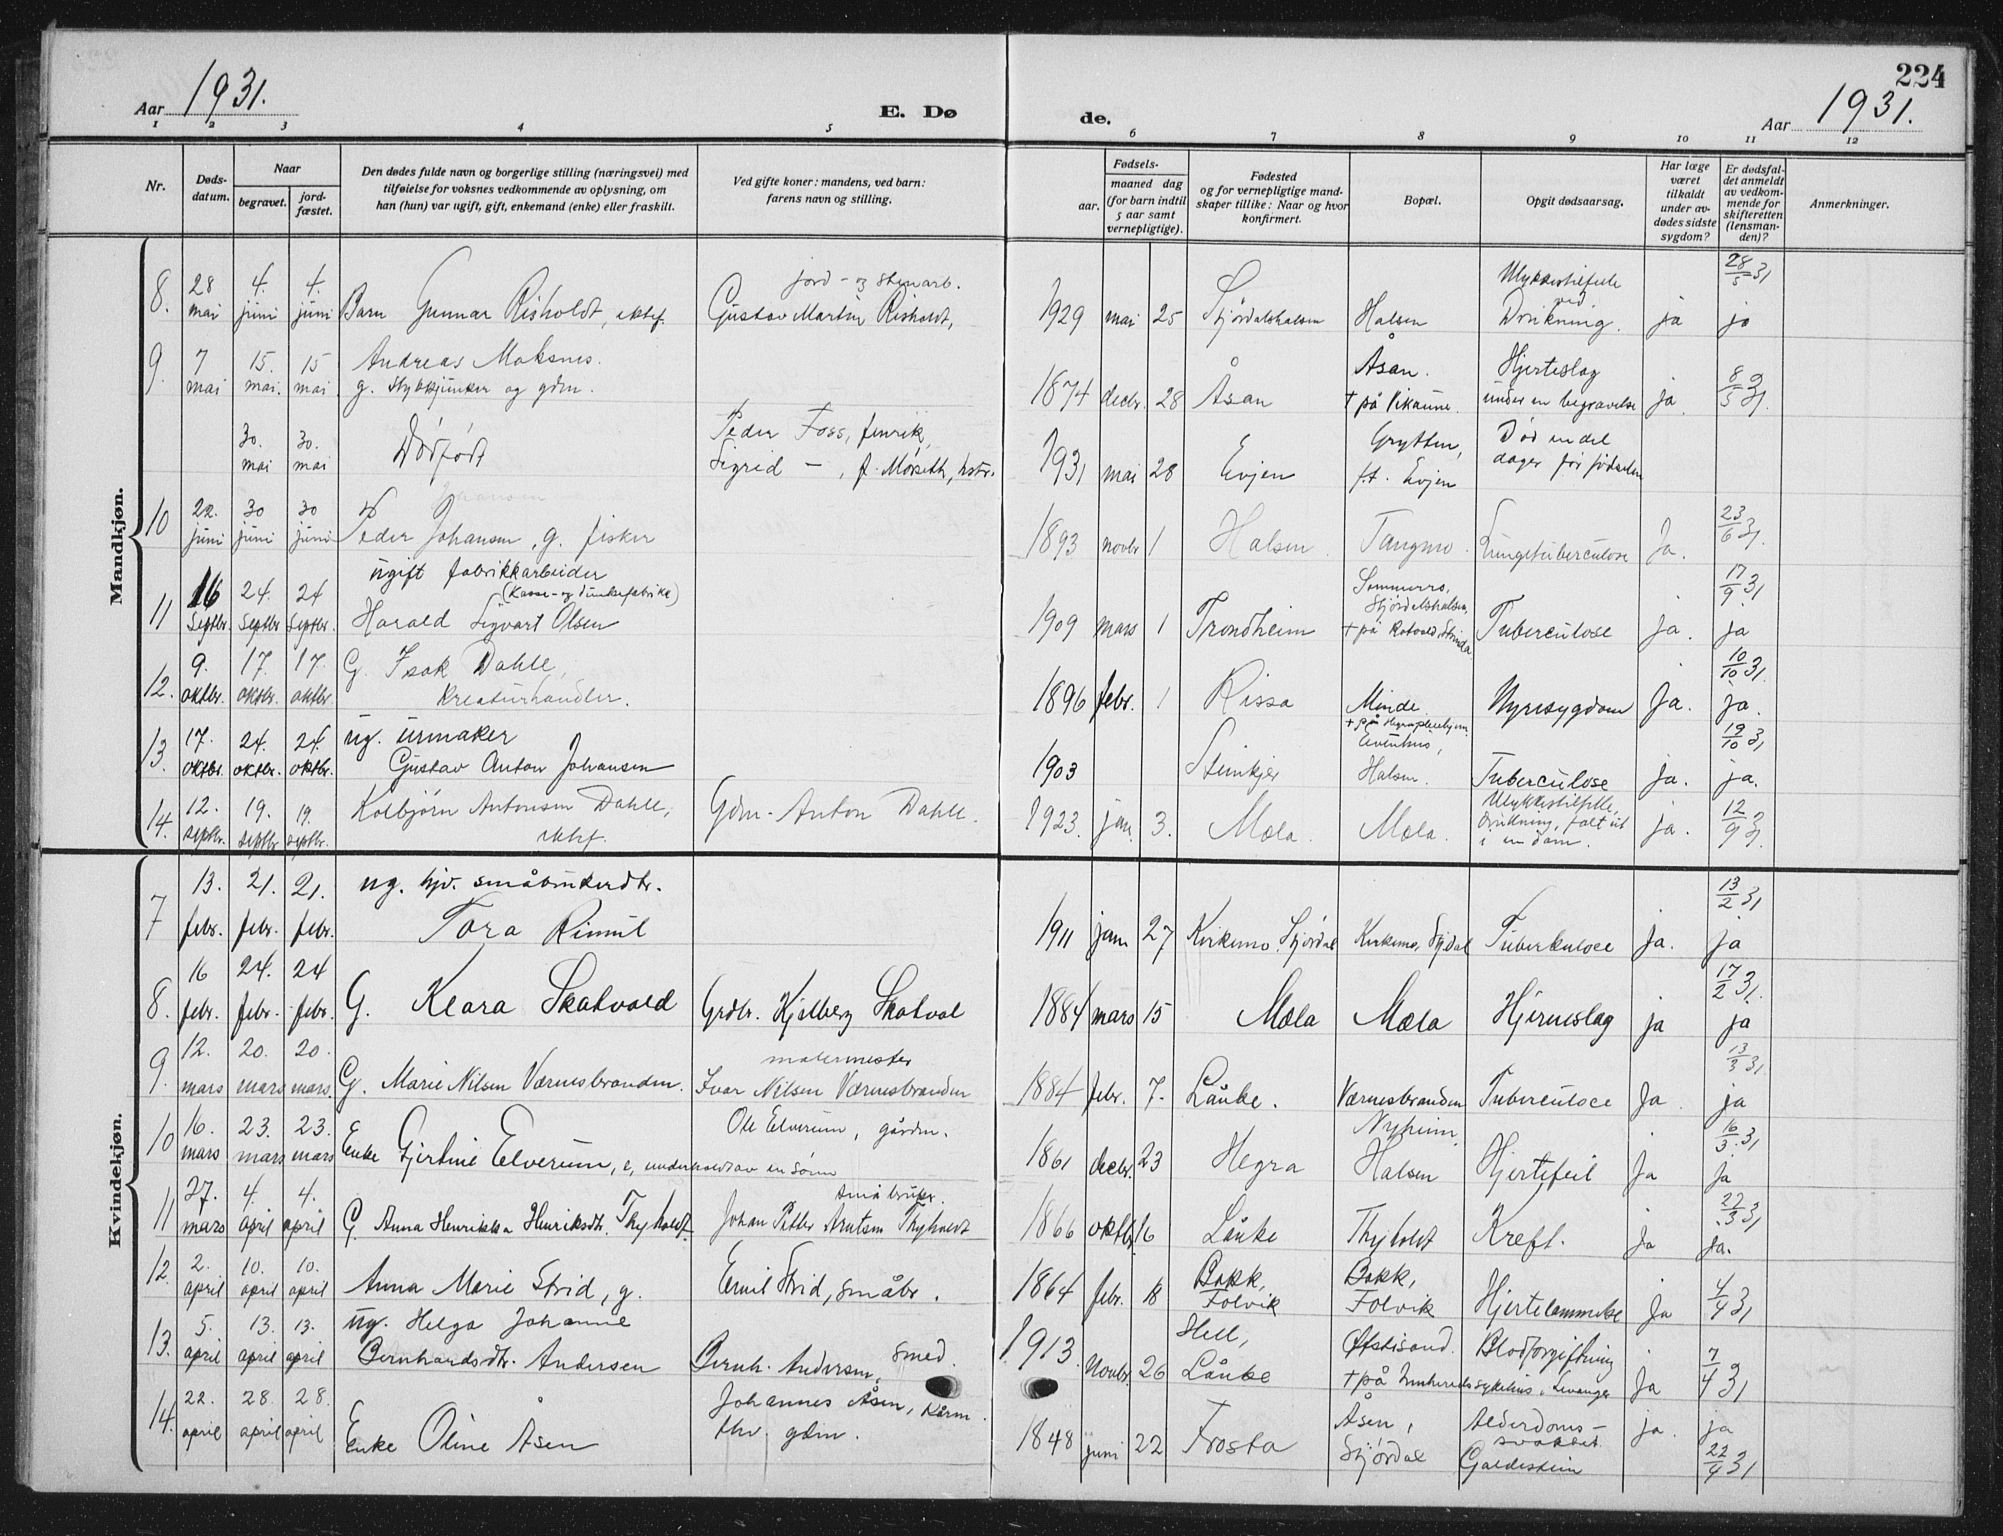 224
Aar 1931.
E. Døde.
Aar 1931.
1 2 3 4 5 6 7 8 9 10 11 12
Nr.
Døds-
datum.
Naar
begravet.
jord-
fæstet.
Den dødes fulde navn og borgerlige stilling (næringsvei) med
tilføielse for voksnes vedkommende av oplysning, om
han (hun) var ugift, gift, enkemand (enke) eller fraskilt.
Ved gifte koner: mandens, ved barn:
farens navn og stilling.
Fødsels-
aar.
maaned dag
(for barn indtil
5 aar samt
vernepligtige).
Fødested
og for vernepligtige mand-
skaper tillike: Naar og hvor
konfirmert.
Bopæl.
Opgit dødsaarsag.
Har læge
været
tilkaldt
under av-
dødes sidste
sygdom?
Er dødsfal-
det anmeldt
av vedkom-
mende for
skifteretten
(lensman-
den)?
Anmerkninger.
Mandkjøn.
8. 28 mai 4. juni 4. juni Barn Gunnar Risholdt, ektef. jord- og stenarb. Gustav Martin Risholdt, 1929 mai 25 Stjørdalshalsen Halsen Ulykkestilfelle ved Drukning. ja 28/5 31 ja
9. 7 mai 15. mai. 15 mai Andreas Moksnes. g. stykkjunker og gdm. 1874 decbr. 28 Åsan Åsan. † på Vikaune. Hjerteslag under en begravelse ja. 8/5 31.
30. mai 30. mai Dødfødt Peder Foss, fenrik, Sigrid — , f. Mørseth, hstr. 1931 mai 28 Evjen Grytten, f.t. Evjen Død en del dager før fødselen
10 22. juni 30 juni 30 juni Johansen Peder Johansen, g. fisker 1893 novbr 1 Halsen. Tangmo. Lungetuberculose Ja. 23/6 31.
11 16 Septbr. 24. Septbr 24 Septbr. ugift fabrikkarbeider (Kasse- og dunkefabrikk) Harald Sigvart Olsen 1909 mars 1 Trondheim Sommerro, Stjørdalshalsen, † på Rotvoll, Strinda Tuberculose ja. 17/9 31. ja
12. 9. oktbr. 17. oktbr. 17. oktbr. G. Isak Dahle, Kreaturhandler. 1896 febr. 1 Rissa Minde Nyresygdom Ja. 10/10 31. ja.
13. 17. oktbr. 24. oktbr. 24. oktbr. ug. urmaker Gustav Anton Johansen 1903 Steinkjer † på Hegrapleiehjem Evenhus, Halsen. Tuberculose ja. 19/10 31 ja.
14. 12. septbr. 19. septbr 19. septbr. Kolbjørn Antonsen Dahle, ektef. Gdm. Anton Dahle. 1923. jan. 3. Mæla. Mæla. Ulykkestilfelle, drukning, falt ut i en dam. ja. 12/9 31.
Kvindekjøn.
7 13. febr. 21. febr. 21. febr. ug. hjv. småbrukerdtr. Tora Rimul 1911 jan 27 Kirkemo, Stjørdal Kirkemo, Stjdal Tuberkulose ja. 13/2 31. ja
8. 16 febr. 24. febr. 24 febr. G. Klara Skatvold Grdbr. Kjelberg Skatval 1884 mars 15 Mæla Mæla Hjerneslag ja 17/2 31. ja
9. 12. mars 20. mars 20. mars. G. Marie Nilsen Værnesbranden. malermester Ivar Nilsen Værnesbranden 1884 febr. 7. Lånke. Værnesbranden Tuberculose Ja. 13/3 31. ja
10 16. mars 23. mars 23. mars Enke Gjertine Elverum, e, underholdt av en sønn Ole Elverum, gårdm. 1861 decbr. 23 Hegra Nyheim, Halsen Hjertefeil Ja 16/3 31 Ja
11 27. mars 4. april 4. april G. Anna Henrikka Henriksdtr. Thyholdt småbruker. Johan Petter Arntsen Thyholdt 1866 oktbr. 16 Lånke Thyholdt Kreft. Ja 27/3 31 Ja.
12. 2. april 10. april 10. april Anna Marie Strid, g. Emil Strid, småbr. 1864 febr. 18 Bakk, Folvik Bakk, Folvik Hjertelammelse Ja 4/4 31
13. 5. april 13. april 13. april ug. Helga Johanne Bernhardsdtr. Andersen Bernh. Andersen, smed. 1913. Novbr. 26 Hell, Lånke Øfstisand. † på Innherreds sykehus, Levanger Blodforgiftning Ja 7/4 31
14. 22. april 28. april 28. april Enke Oline Åsen Johannes Åsen, kårm. thv. gdm. 1848 juni 22 Frosta Åsen, Stjørdal Alderdoms- svakhet Galdestein ja. ja 22/4 31